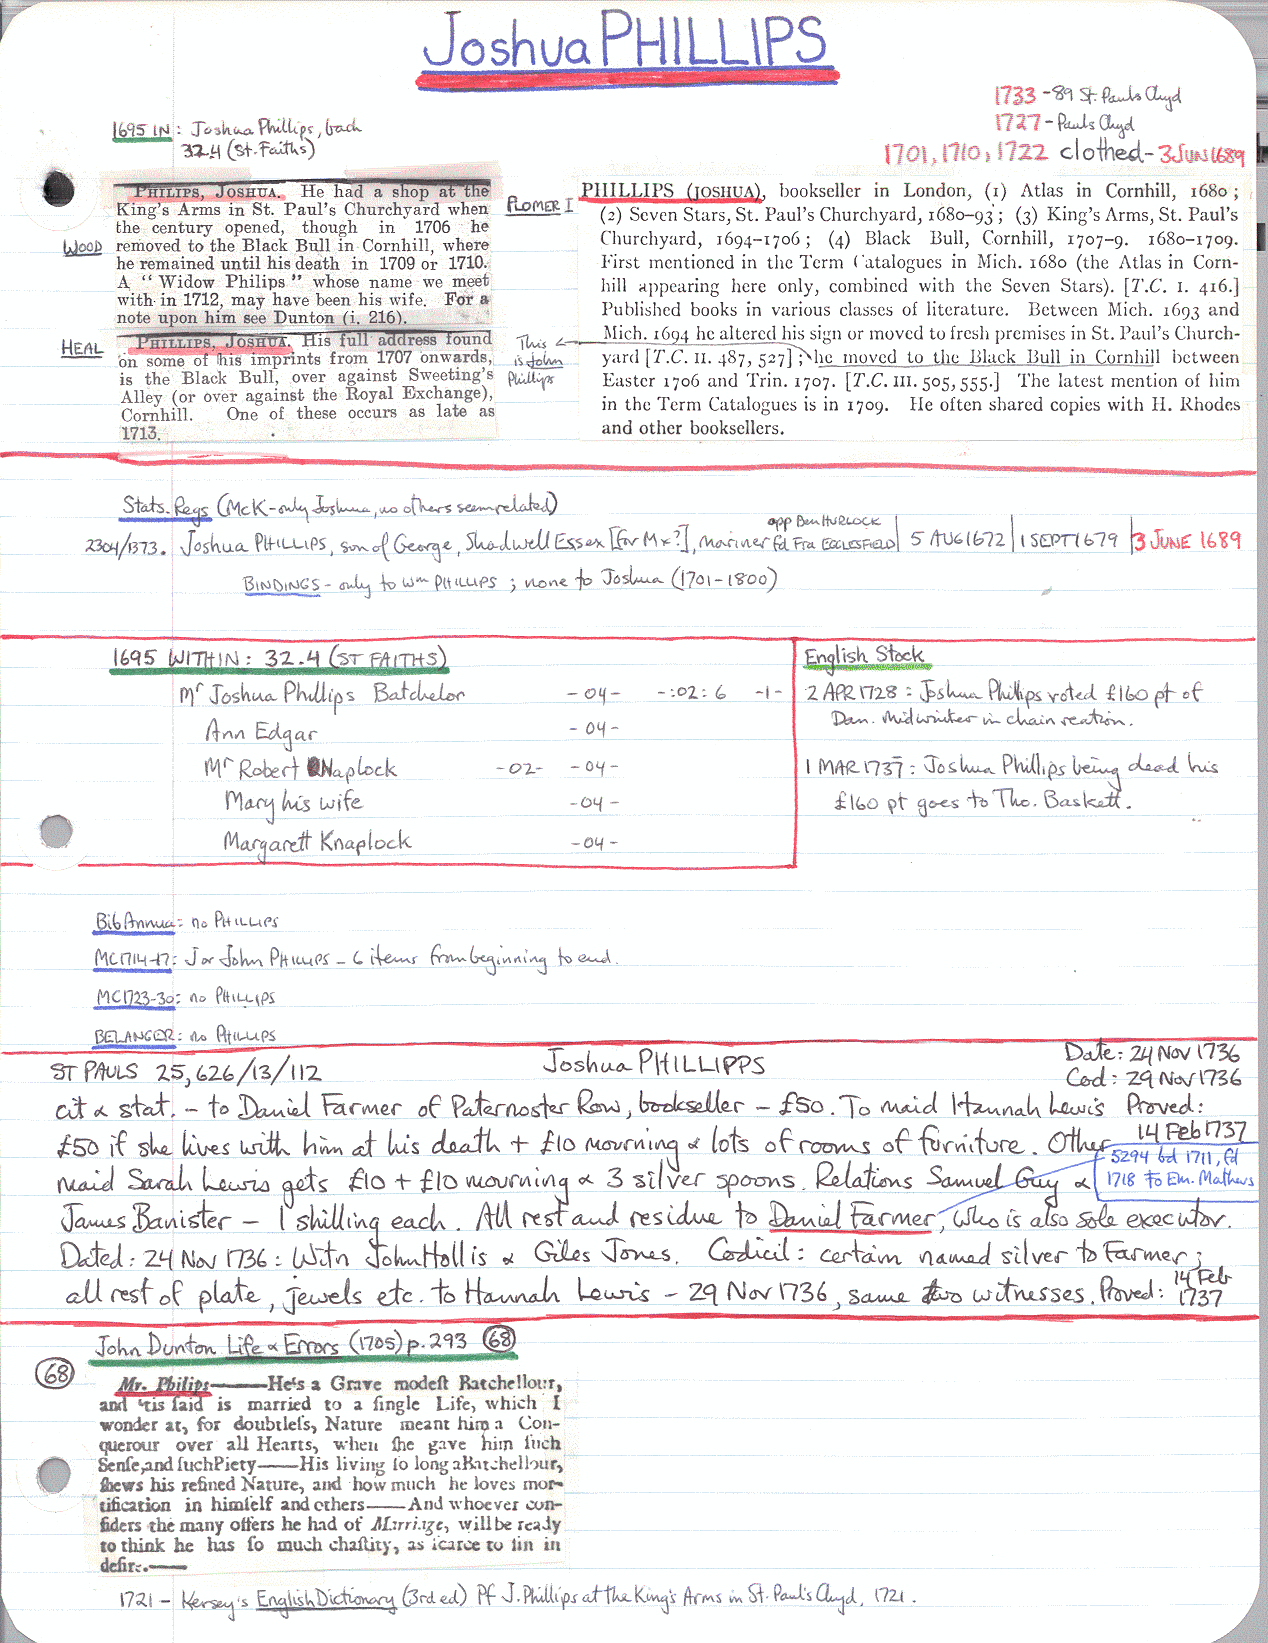 Joshua PHILLIPS
1733 - 89 St. Pauls Chyd
1727 - Pauls Chyd
1701, 1710, 1722 clothed - 3 JUN 1689
1695 IN: Joshua Phillips, bach
32.4 (St. Faiths)
WOOD
PHILIPS, JOSHUA. He had a shop at the
King's Arms in St. Paul's Churchyard when
the century opened, though in 1706 he
removed to the Black Bull in Cornhill, where
he remained until his death in 1709 or 1710.
A "Widow Philips" whose name we meet
with in 1712, may have been his wife. For a
note upon him see Dunton (i. 216).
HEAL
PHILLIPS, JOSHUA. His full address found
on some of his imprints from 1707 onwards,
is the Black Bull, over against Sweeting's
Alley (or over against the Royal Exchange),
Cornhill. One of these occurs as late as
1713.
PLOMER I
This
is John
Phillips
PHILLIPS (JOSHUA), bookseller in London, (1) Atlas in Cornhill, 1680;
(2) Seven Stars, St. Paul's Churchyard, 1680-93; (3) King's Arms, St. Paul's
Churchyard, 1694-1706; (4) Black Bull, Cornhill, 1707-9. 1680-1709.
First mentioned in the Term Catalogues in Mich. 1680 (the Atlas in Corn-
hill appearing here only, combined with the Seven Stars). [T.C. I. 416.]
Published books in various classes of literature. Between Mich. 1693 and
Mich. 1694 he altered his sign or moved to fresh premises in St. Paul's Church-
yard [T.C. II. 487, 527]; he moved to the Black Bull in Cornhill between
Easter 1706 and Trin. 1707. [T.C. III. 505, 555.] The latest mention of him
in the Term Catalogues is in 1709. He often shared copies with H. Rhodes
and other booksellers.
Stats. Regs (McK - only Joshua, no others seem related)
app Ben HURLOCK
2304/1373. Joshua PHILLIPS, son of George, Shadwell Essex [for Mx?], mariner fd Fra ECCLESFIELD | 5 AUG 1672 | 1 SEPT 1679 | 3 JUNE 1689
BINDINGS - only to Wm PHILLIPS; none to Joshua (1701-1800)
1695 WITHIN: 32.4 (ST FAITHS)
Mr Joshua Phillips Batchelor -04- -:02:6 -1-
Ann Edgar -04-
Mr Robert Naplock -02- -04-
Mary his wife -04-
Margarett Knaplock -04-
English Stock
2 APR 1728: Joshua Phillips voted £160 pt of
Dan. Midwinter in chain reation.
1 MAR 1737: Joshua Phillips being dead his
£160 pt goes to Tho. Baskett.
Bib Annua: no PHILLIPS
MC1714-17: J or John PHILLIPS - 6 items from beginning to end.
MC1723-30: no PHILLIPS
BELANGER: no PHILLIPS
ST PAULS 25,626/13/112 Joshua PHILLIPPS
Date: 24 Nov 1736
Cod: 29 Nov 1736
cit & stat. - to Daniel Farmer of Paternoster Row, bookseller - £50. To maid Hannah Lewis Proved:
14 Feb 1737
£50 if she lives with him at his death + £10 mourning & lots of rooms of furniture. Other
5294 bd 1711, fd
1718 to Em. Mathews
maid Sarah Lewis gets £10 + £10 mourning & 3 silver spoons. Relations Samuel Guy &
James Banister - 1 shilling each. All rest and residue to Daniel Farmer, who is also sole executor.
Dated: 24 Nov 1736: Witn John Hollis & Giles Jones. Codicil: certain named silver to Farmer;
all rest of plate, jewels etc. to Hannah Lewis - 29 Nov 1736, same two witnesses. Proved: 14 Feb
1737
John Dunton Life & Errors (1705) p. 293 68
68
Mr. Philips——He's a Grave modeſt Batchellour,
and 'tis ſaid is married to a ſingle Life, which I
wonder at, for doubtleſs, Nature meant him a Con-
querour over all Hearts, when ſhe gave him ſuch
Senſe, and ſuch Piety——His living ſo long a Batchellour,
ſhews his refined Nature, and how much he loves mor-
tification in himſelf and others——And whoever con-
ſiders the many offers he had of Marriage, will be ready
to think he has ſo much chaſtity, as ſcarce to ſin in
deſire.——
1721 - Kersey's English Dictionary (3rd ed) Pf J. Phillips at the King's Arms in St. Paul's Chyd, 1721.